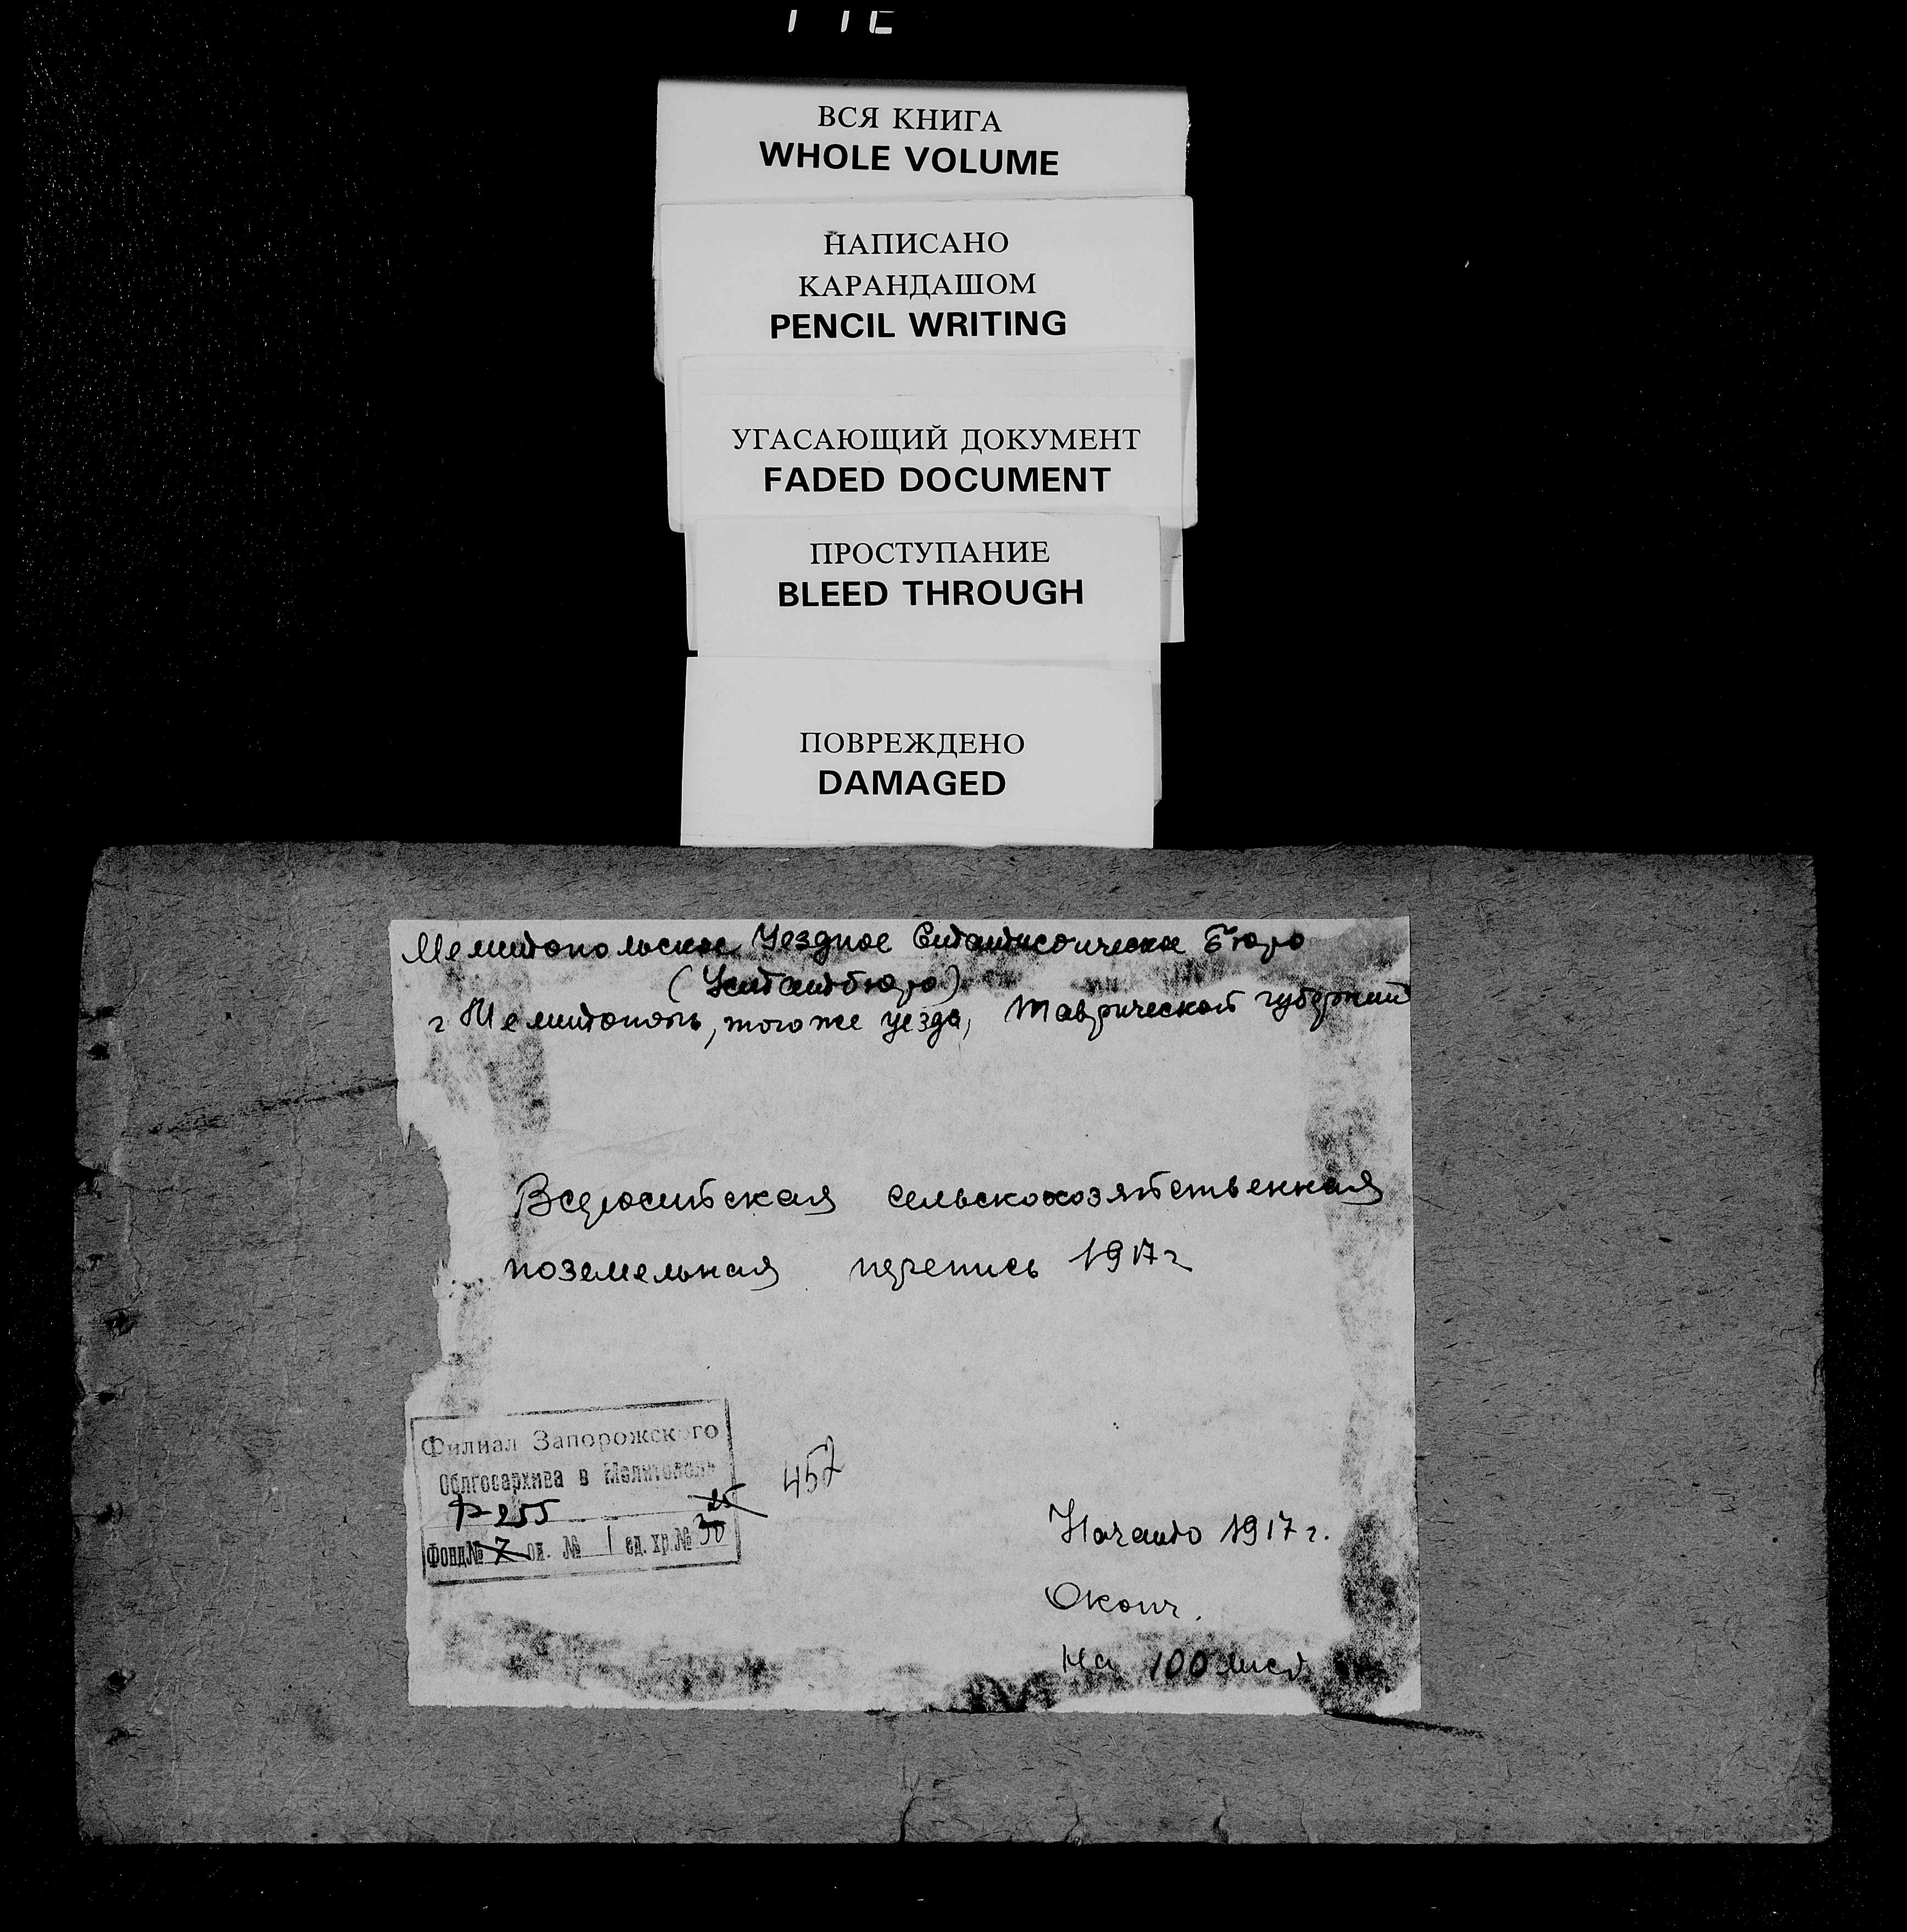 ВСЯ КНИГА
WHOLE VOLUME
НАПИСАНО
КАРАНДАШОМ
PENCIL WRITING
УГАСАЮЩИЙ ДОКУМЕНТ
FADED DOCUMENT
ПРОСТУПАНИЕ
BLEED THROUGH
ПОВРЕЖДЕНО
DAMAGED
Мелитопольское Уездное Статистическое Бюро
(Устатбюро)
г Мелитополь, того же уезда, Таврической губернии
Всероссийская сельскохозяйственная
поземельная перепись 1917 г
Филиал Запорожского
Облгосархива в Мелитополе
Р-255 25
Фонд № 7 оп. № 1 ед. хр. № 30
457
Начато 1917 г.
Оконч.
На 100 лист